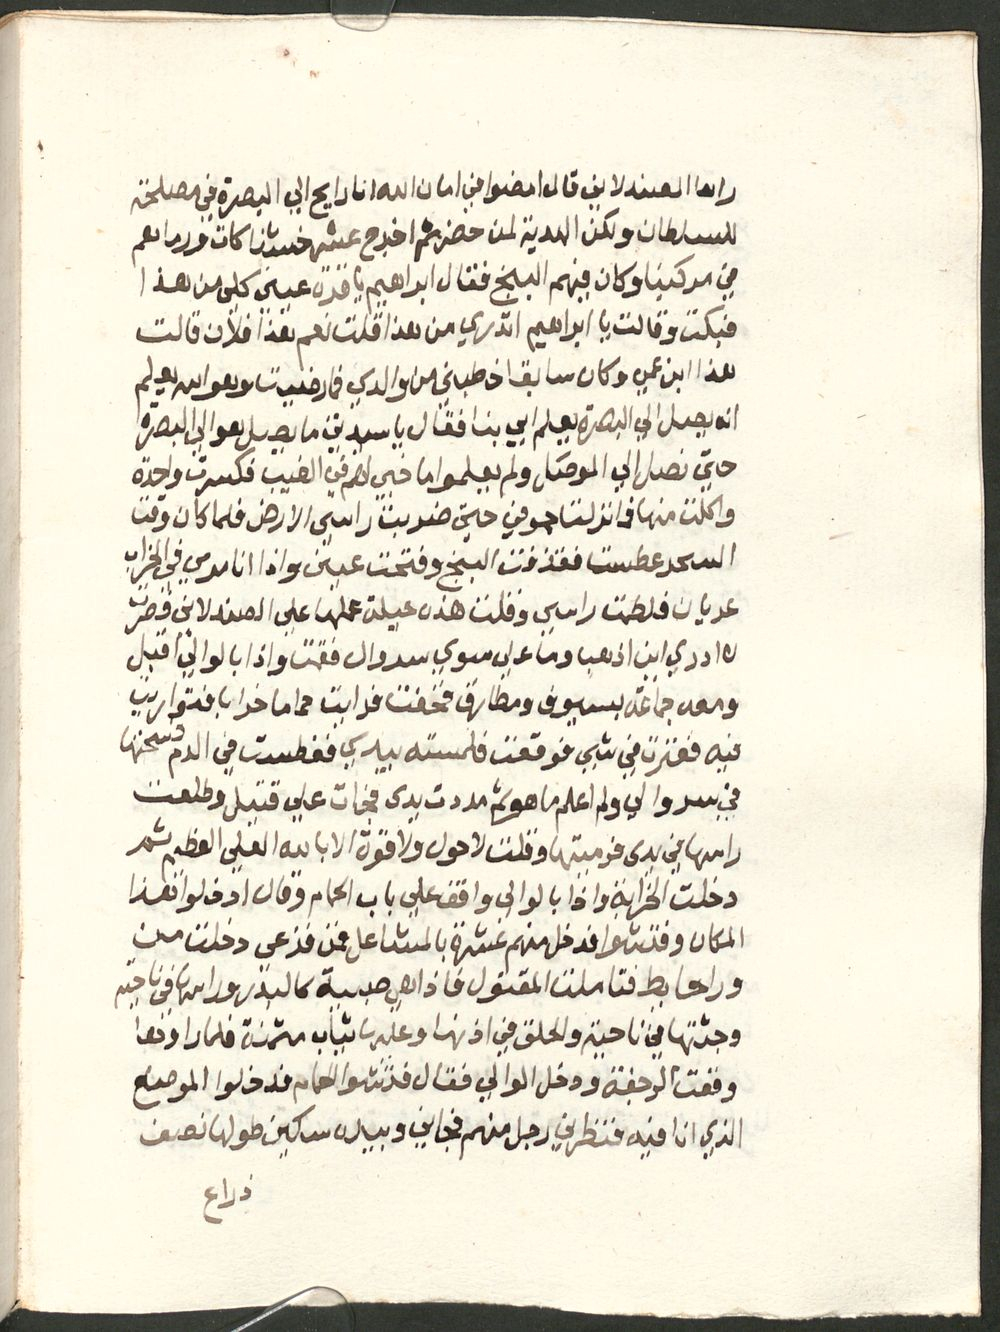 راها الصندلاني قال امضوا في امان الله انا رايح الي البصرة في مصلحة
للسلطان ولكن الهدية لمن حضر ثم اخرج عشر خشتنا كات ورماهم
في مركبنا وكان فيهم البنج فقال ابراهيم يا قرة عيني كلي من هذا
فبكت وقالت يا ابراهيم اتدري من هذا قلت نعم هذا فلان قالت
هذا ابن عمي وكان سابقا خطبني من والدي فما رضيت وهو الله يعلم
انه يصل الي البصرة يعلم ابي بنا فقال يا سيدتي ما يصل هو الي البصرة
حتي نصل الي الموصل ولم يعلموا ما خبي لهم في الغيب فكسرت واحدة
واكلت منها فما نزلت جوفي حتي ضربت راسي الارض فلما كان وقت
السحر عطست فقذفت البنج وفتحت عيني واذا انا مرمي في الخراب
عريان فلطمت راسي وقلت هذه حيلة عملها علي الصندلاني فصرت
لا ادري اين اذهب وما علي سوي سروال فقمت واذا بالوالي اقبل
ومعه جماعة بسيوف ومطارق فخفت فرايت حماما خرابا فتواريت
فيه فعثرت في شي فوقعت فلمسته بيدي فغطست في الدم ومسحتها
في سروالي ولم اعلم ما هو ثم مددت يدي فجات علي قتيل وطلعت
راسها في يدي فرميتها وقلت لا حول ولا قوة الا بالله العلي العظيم ثم
دخلت الخرابة واذا بالوالي واقف علي باب الحمام وقال ادخلوا هذا
المكان وفتشوا فدخل منهم عشرة بالمشاعل فمن فزعي دخلت من
ورا حايط فتاملت المقتول فاذا هي صبية كالبدر وراسها في ناحية
وجثتها في ناحية والحلق في اذنها وعليها ثياب مثمنة فلما راوها
وقعت الرجفة ودخل الوالي فقال فتشوا الحمام فدخلوا الموضع
الذي انا فيه فنظرني رجل منهم فجاني وبيده سكين طولها نصف
ذراع